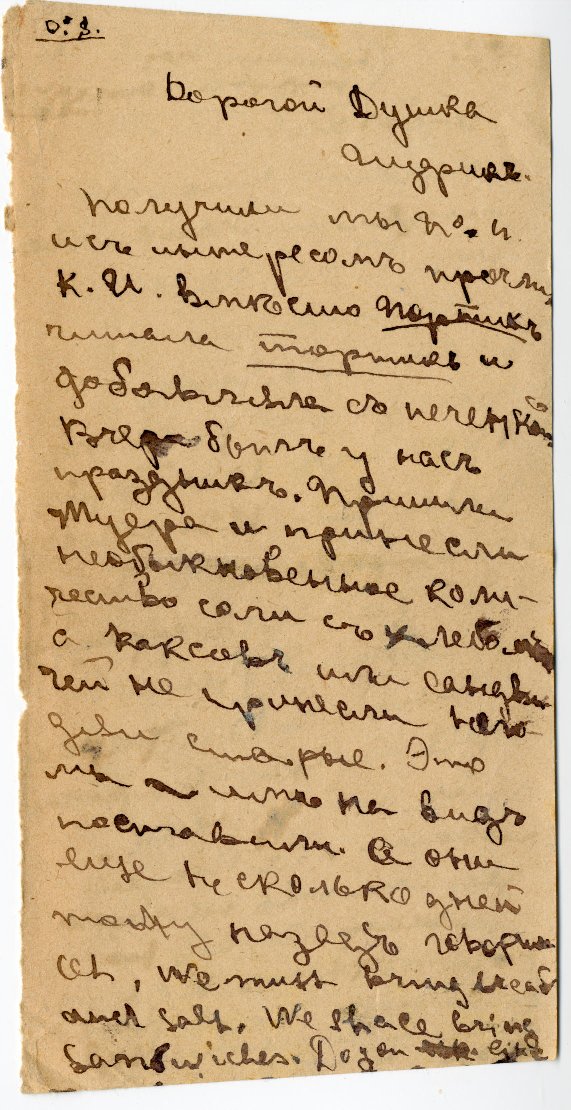 Дорогой Душка
Получили мы
и съ интересомъ прочли
К. И. вмѣсто портикъ
читала тортикъ и
добольчила съ печен
Вчера былъ у насъ
праздникъ. Пришли
и принесли
необыкновенное коли-
чество соли съ хлебо
а каксовъ или сандви
чей не принесли
старые. Это
мы имъ на видъ
поставили. А они
еще несколько дней
тому назадъ говорили
Oh, we must bring bread
and salt. We shall bring
sandwiches. Dozen